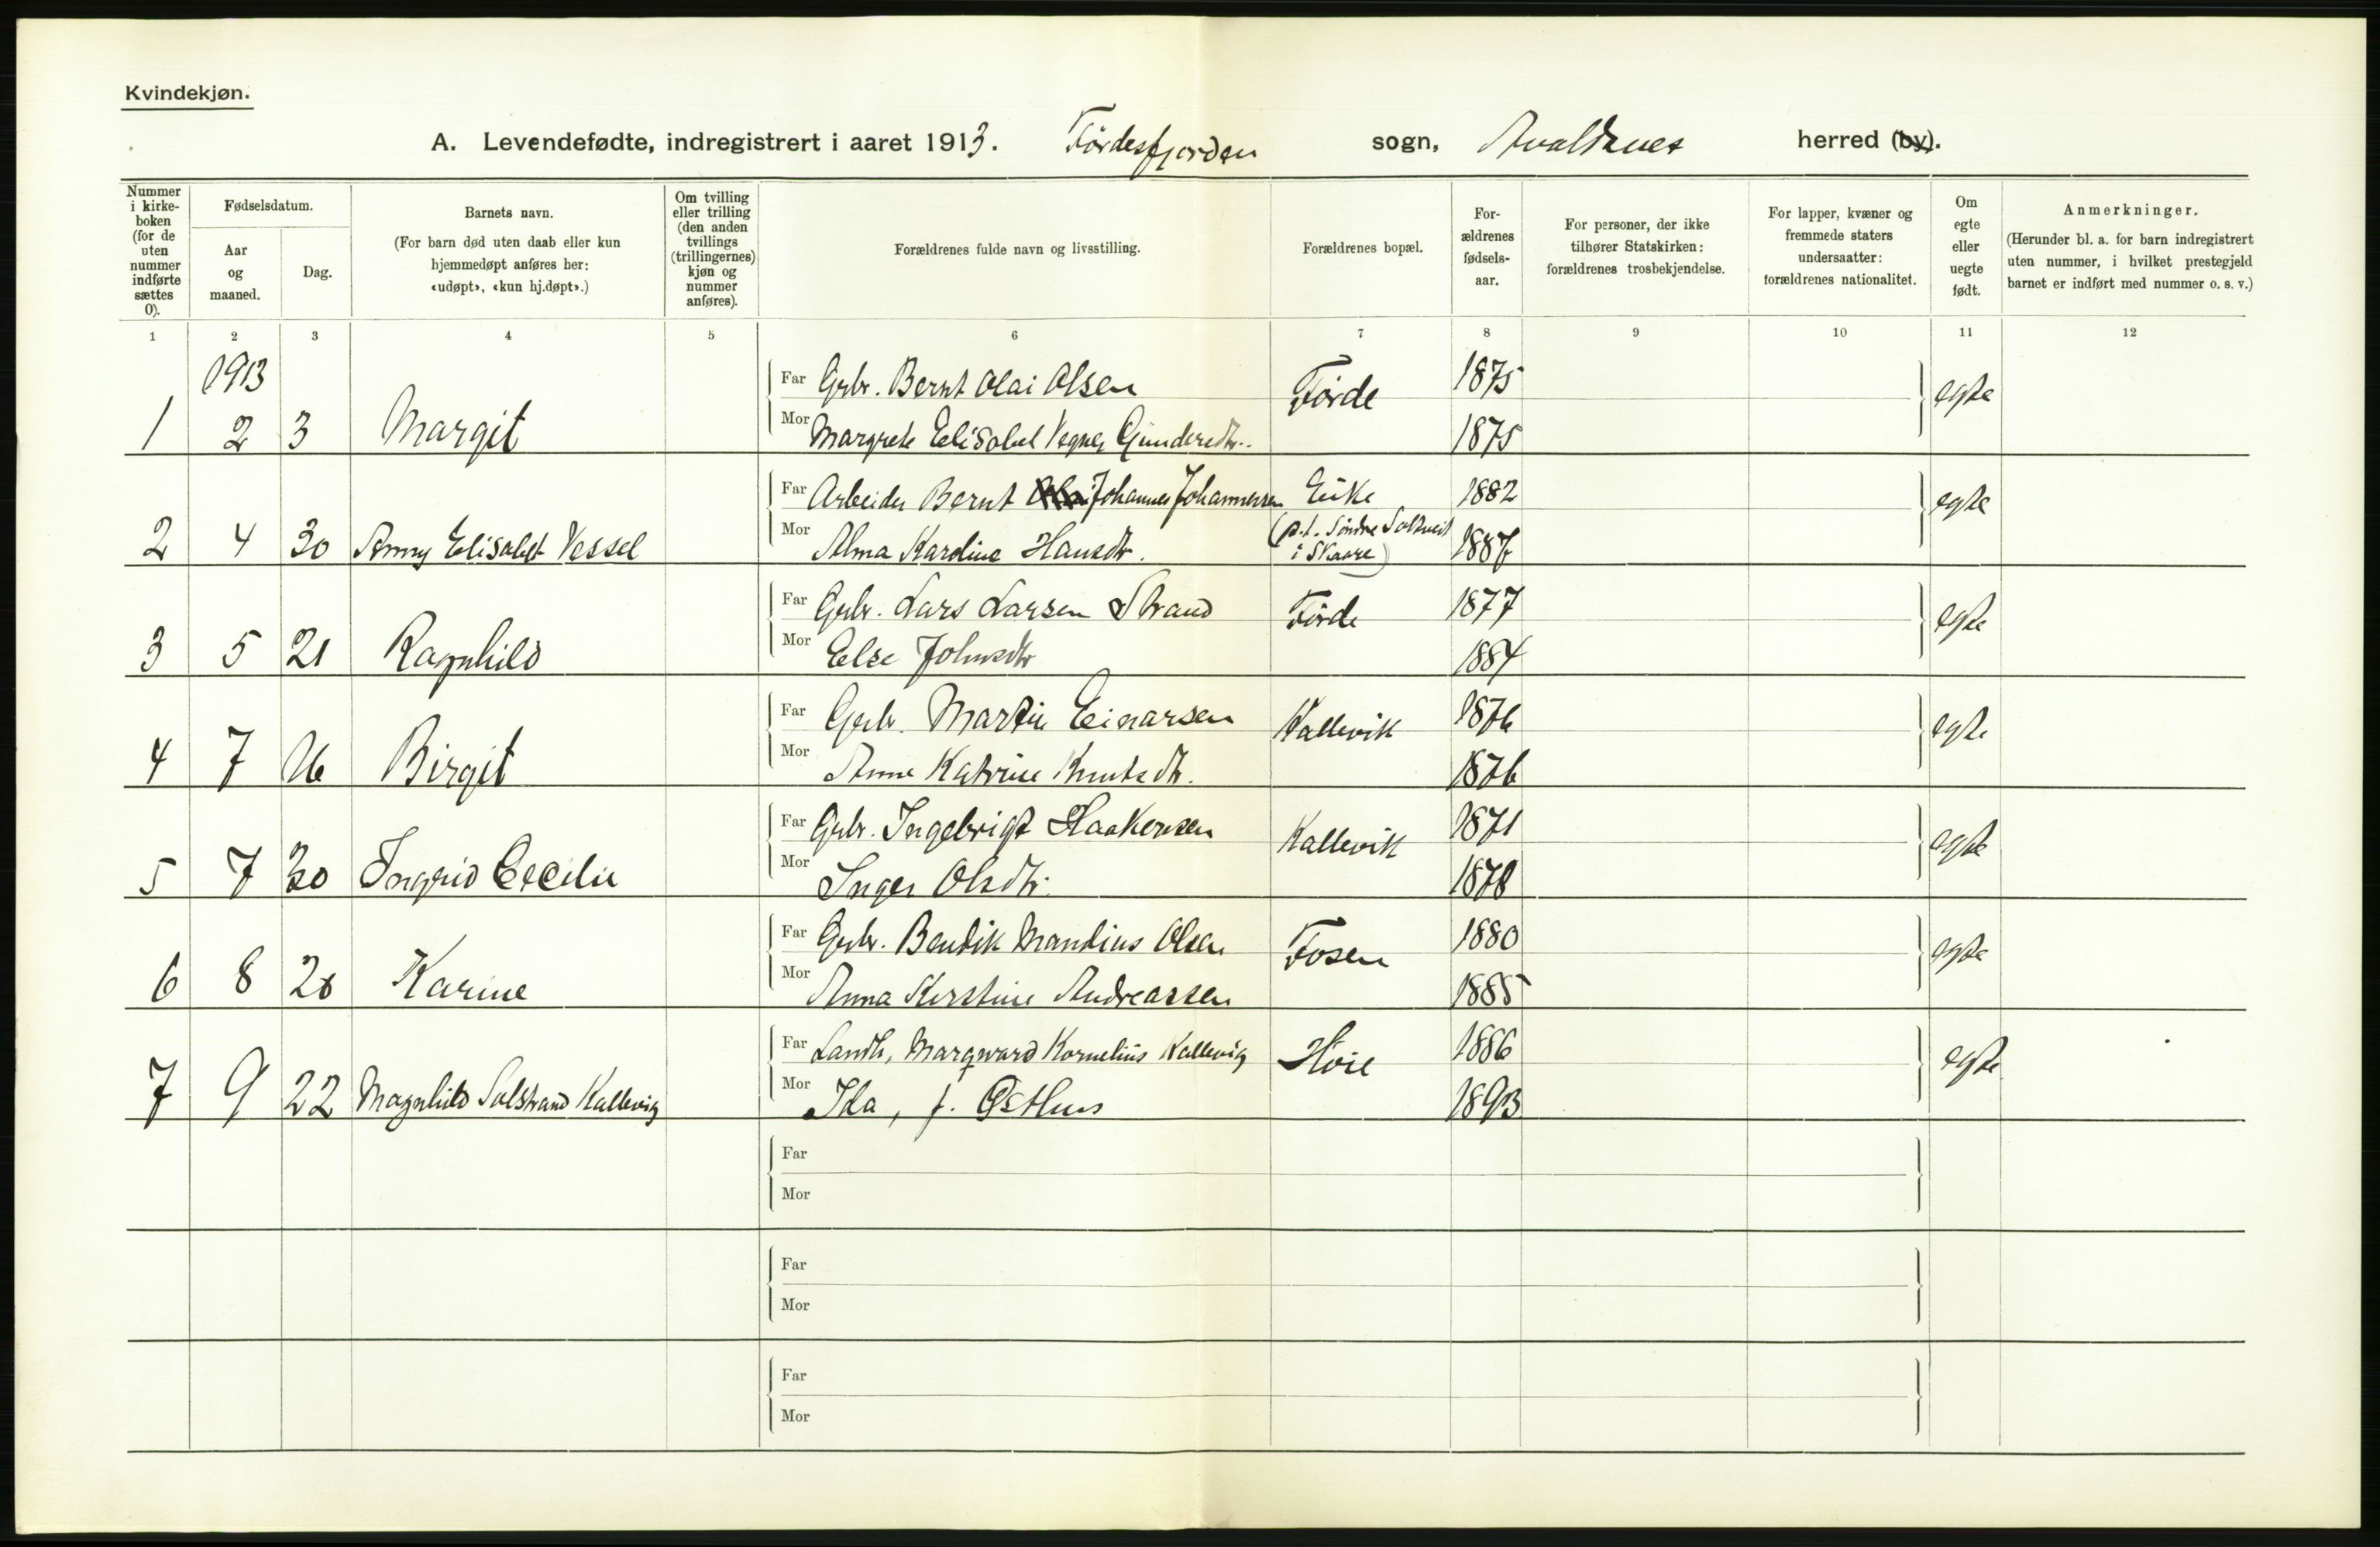 Kvindekjøn.
A. Levendefødte, indregistrert i aaret 1913. Førdesfjorden sogn, Avaldsnes herred (by).
Nummer i kirke-boken (for de uten nummer indførte sættes 0).
Fødselsdatum.
Aar og maaned.
Dag.
Barnets navn.
(For barn død uten daab eller kun hjemmedøpt anføres her: «udøpt», «kun hj.døpt».)
Om tvilling eller trilling (den anden tvillings (trillingernes) kjøn og nummer anføres).
Forældrenes fulde navn og livsstilling.
Forældrenes bopæl.
For-ældrenes fødsels-aar.
For personer, der ikke tilhører Statskirken: forældrenes trosbekjendelse.
For lapper, kvæner og fremmede staters undersaatter: forældrenes nationalitet.
Om egte eller uegte født.
Anmerkninger.
(Herunder bl. a. for barn indregistrert uten nummer, i hvilket prestegjeld barnet er indført med nummer o. s. v.)
1 2 3 4 5 6 7 8 9 10 11 12
1913
Far Grbr. Bernt Olai Olsen Førde 1875 egte
1 2 3 Margit Mor Margrete Elisabet Gundersdtr. 1875
Far Arbeider Bernt Johannes Johannessen Eike 1882 egte
2 4 30 Anny Elisabet Vessel Mor Alma Karoline Hansdtr. (p.t. Søndre Saltveit i Skaare) 1887
Far Grbr. Lars Larsen Strand Førde 1877 egte
3 5 21 Ragnhild Mor Else Johnsdtr 1884
Far Grbr. Martin Einarsen Kallevik 1876 egte
4 7 16 Birgit Mor Anne Katrine Knutsdtr. 1876
Far Grbr. Ingebrigt Haakensen Kallevik 1871 egte
5 7 30 Ingrid Cecilie Mor Inger Olsdtr. 1878
Far Grbr. Bendik Mandius Olsen Fosen 1880 egte
6 8 28 Karine Mor Anna Kirstine Andreassen 1885
Far Landh. Marqward Kornelius Kallevig Høie 1886 egte
7 9 22 Magnhild Solstrand Kallevig Mor Ida, f. Østhus 1893
Far
Mor
Far
Mor
Far
Mor